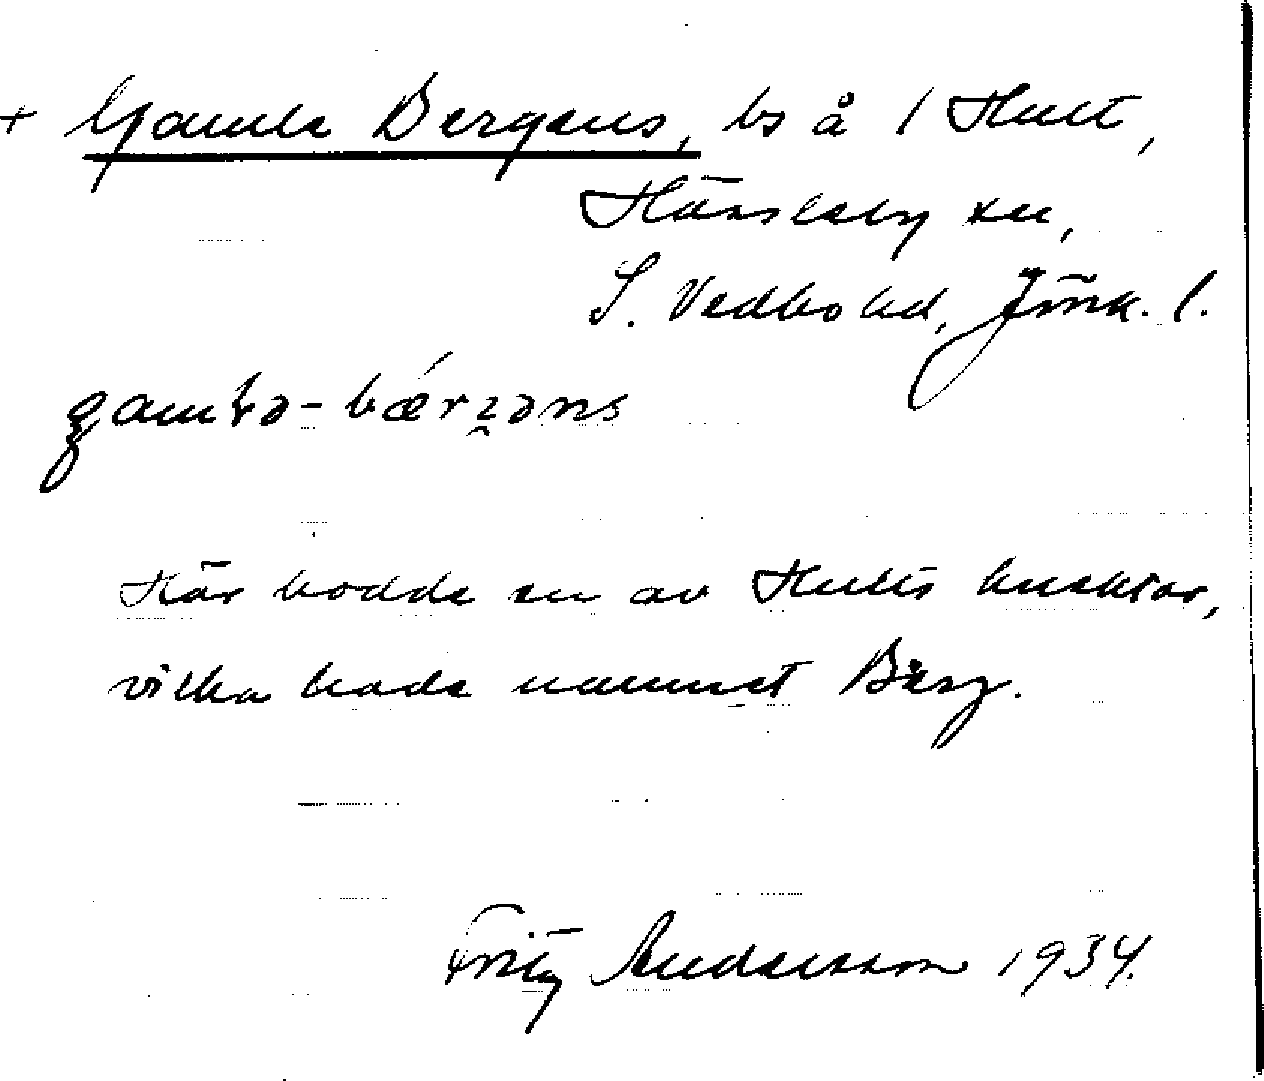 + Gamla Bergens, bs å 1 Hult,
Hässleby sn,
S. Vedbo hd, Jönk. l.
gamla-bærgəns
Här bodde en av Hults knektar,
vilka hade namnet Berg.
Fritz Andersson 1934.